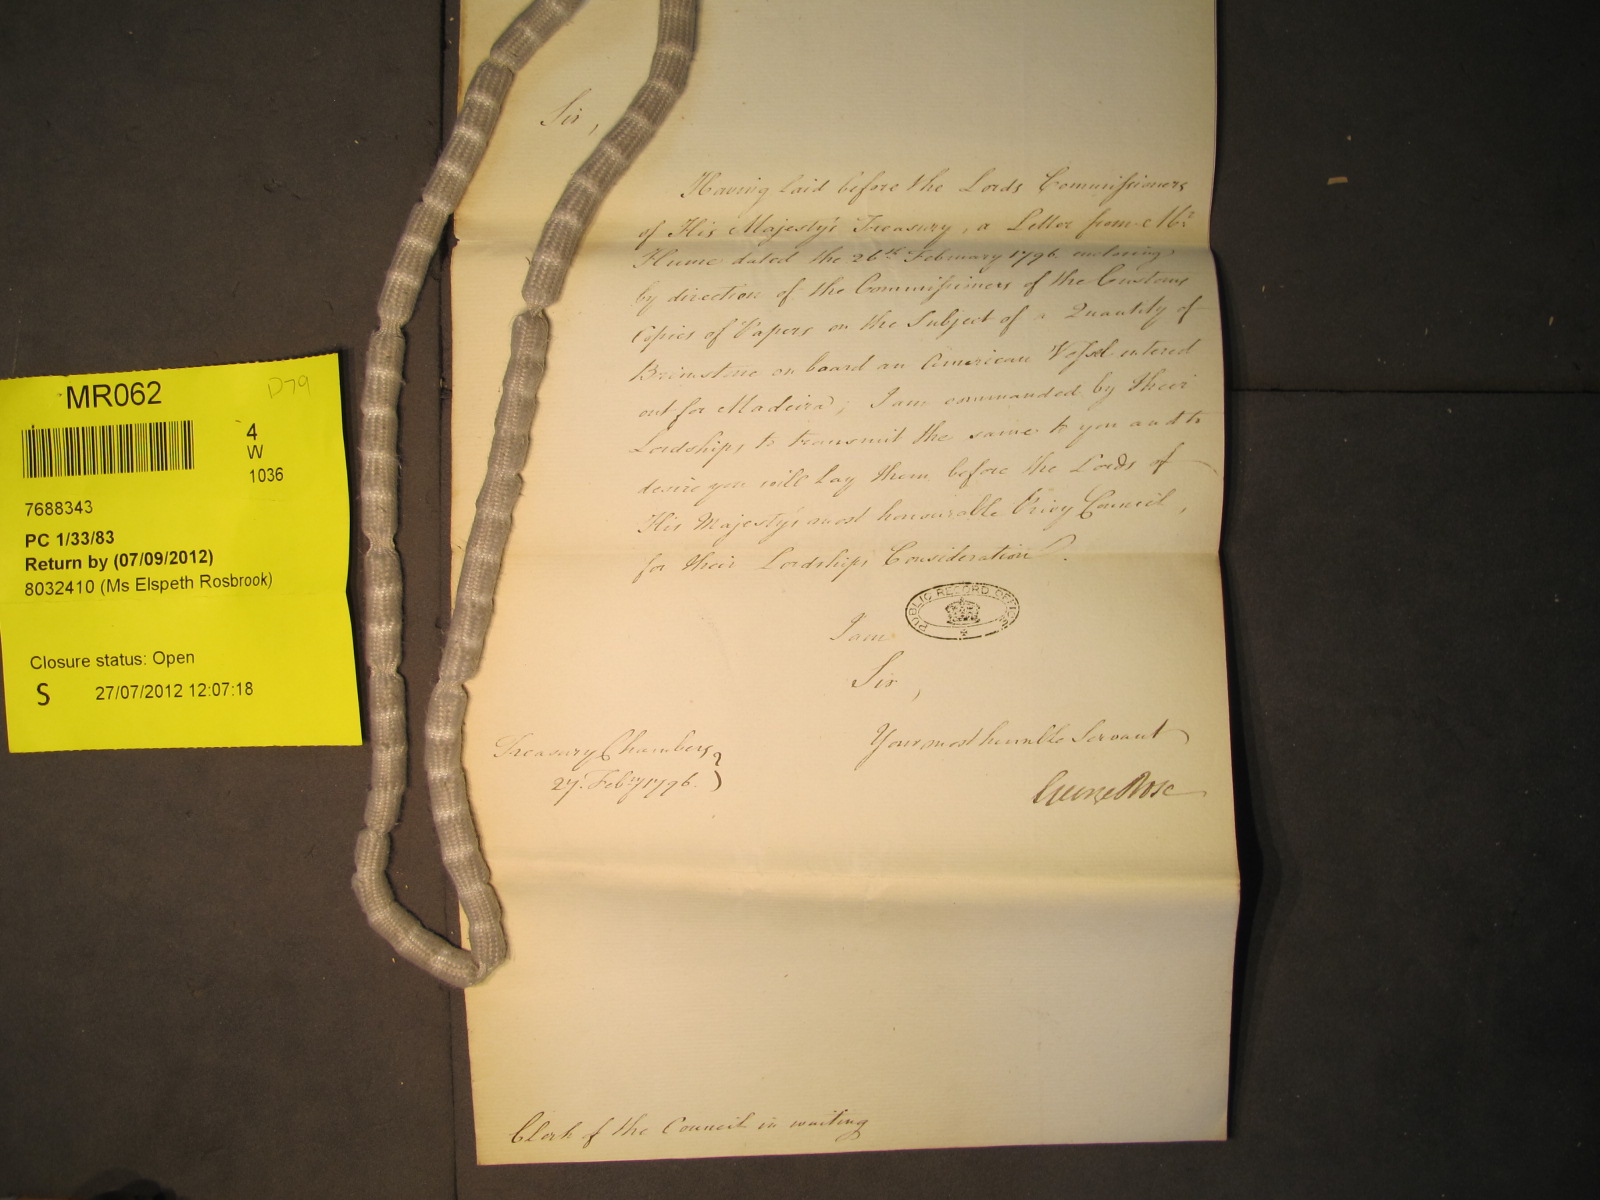 MR062
D79
4
W
1036
7688343
PC 1/33/83
Return by (07/09/2012)
8032410 (Ms Elspeth Rosbrook)
Closure status: Open
S 27/07/2012 12:07:18
Sir,
Having laid before the Lords Commissioners
of His Majesty's Treasury, a Letter from Mr
Hume dated the 26th February 1796 enclosing
by direction of the Commissioners of the Customs
Copies of Papers on the Subject of a Quantity of
Brimstone on board an American Vessel entered
out for Madeira; I am commanded by their
Lordships to transmit the same to you and to
desire you will lay them before the Lords of
His Majesty's most honourable Privy Council,
for their Lordships Consideration.
PUBLIC RECORD OFFICE
I am
Sir,
Your most humble Servant
George Rose
Treasury Chambers
27 Febry 1796.
Clerk of the Council in waiting